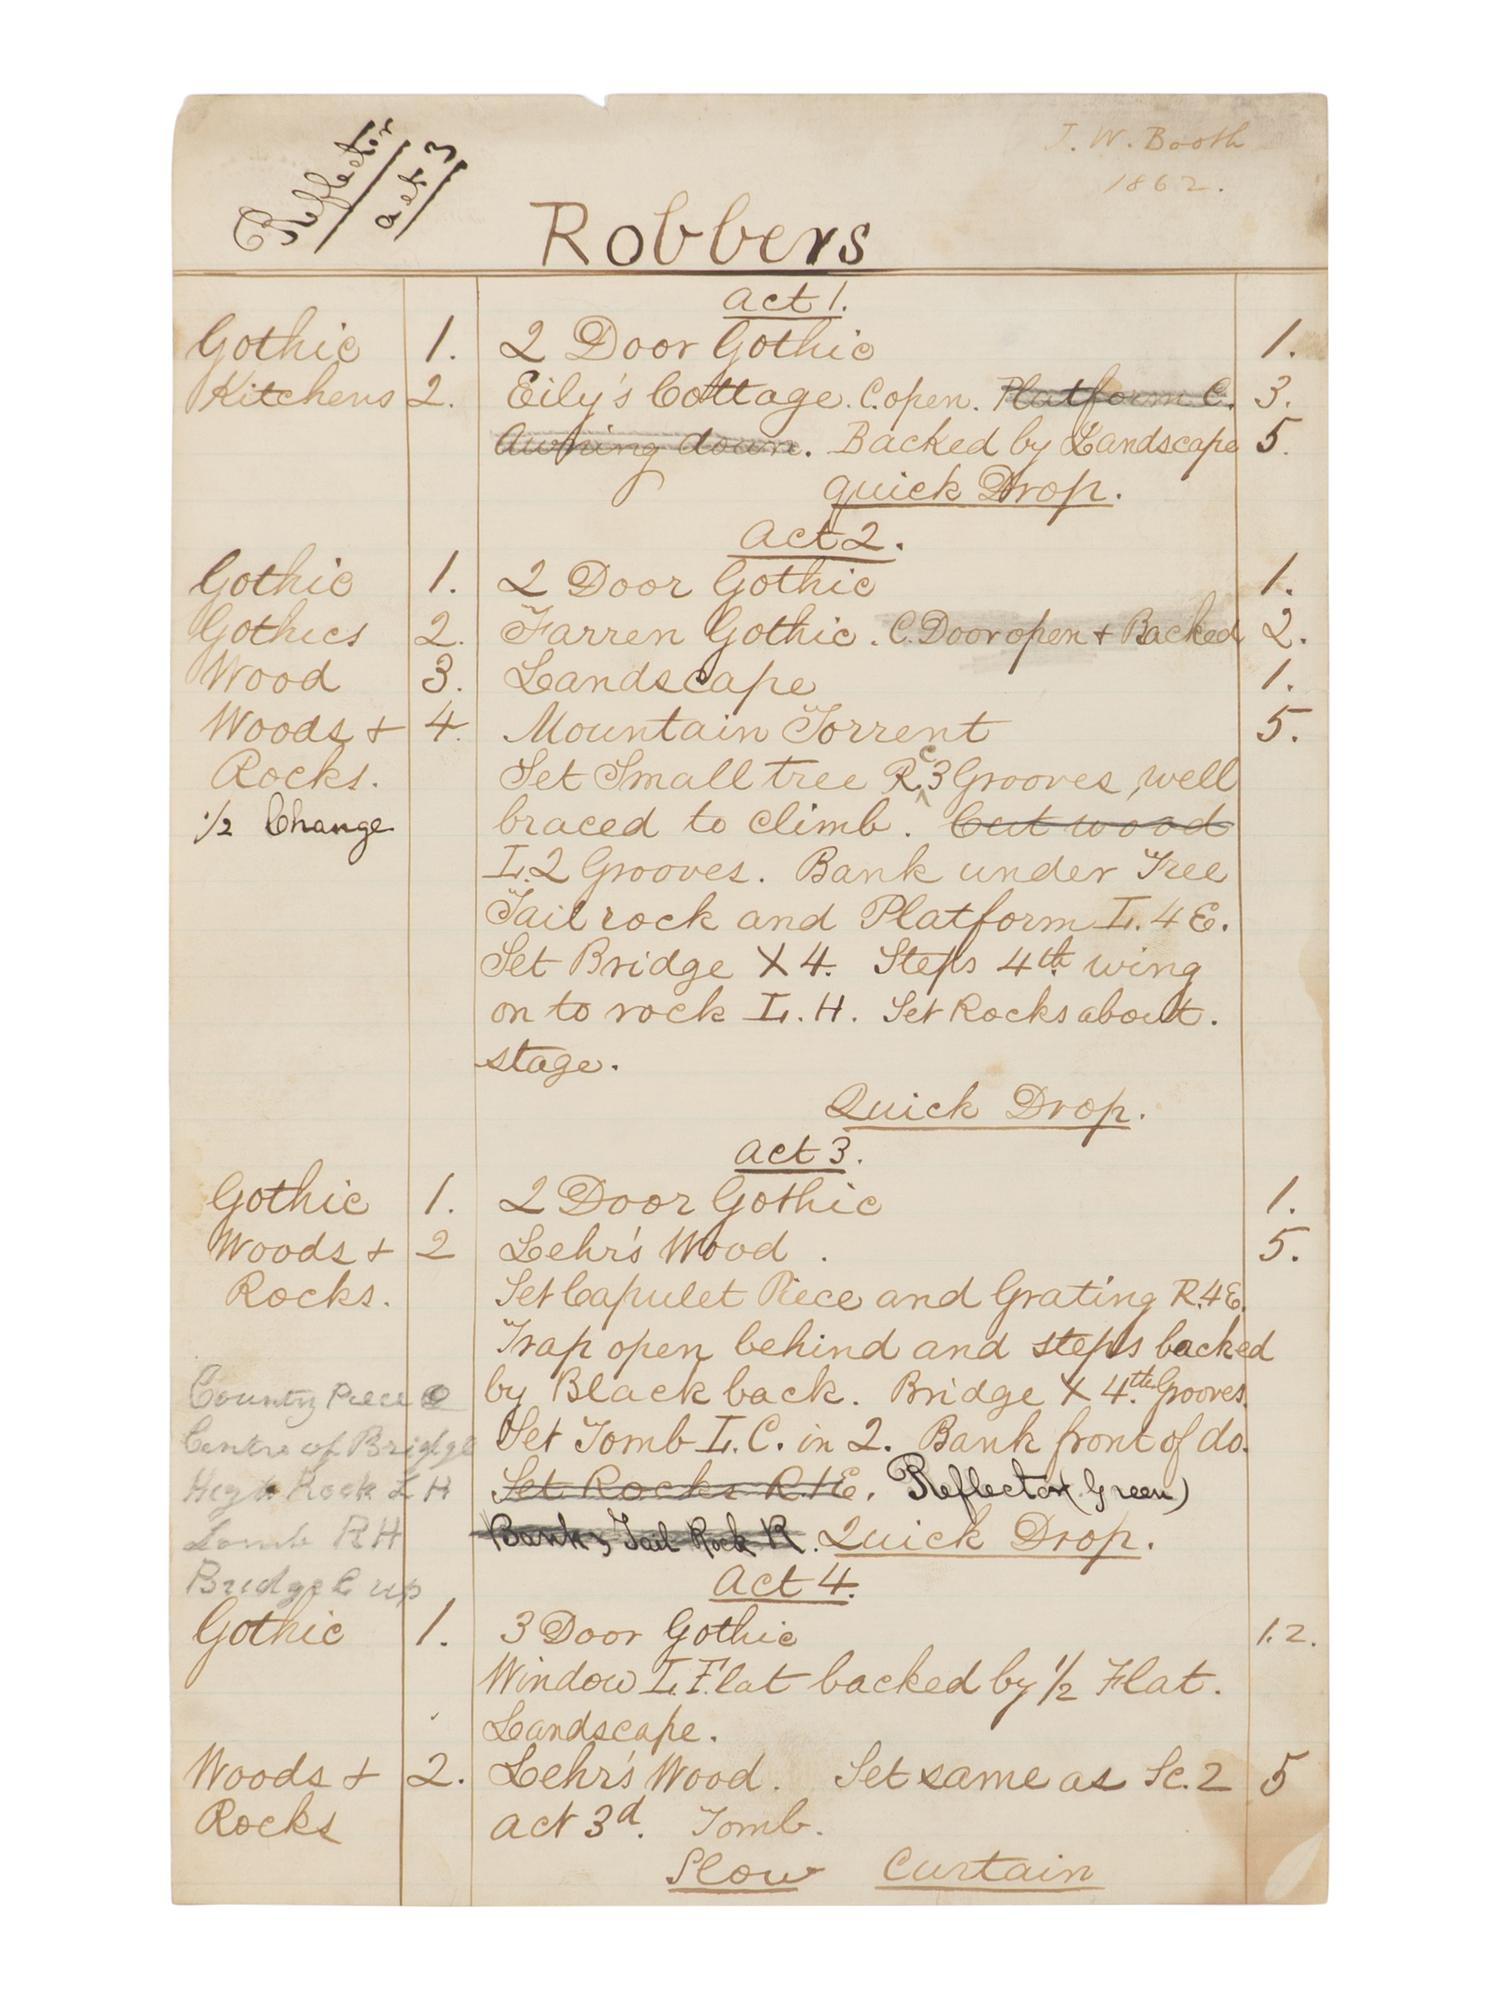 Reflector
act 3
J. W. Booth
1862.
Robbers
Act 1.
Gothic 1. 2 Door Gothic 1.
Kitchens 2. Eily's Cottage. C. open. Platform C. 3.
Awning down. Backed by Landscape 5.
quick Drop.
Act 2.
Gothic 1. 2 Door Gothic 1.
Gothics 2. Farren Gothic. C. Door open + Backed 2.
Wood 3. Landscape 1.
Woods + 4. Mountain Torrent 5.
Rocks. Set Small tree R.C 3 Grooves, well
1/2 Change braced to climb. Cut wood
L. 2 Grooves. Bank under Tree
Tail rock and Platform L. 4 E.
Set Bridge X 4. Steps 4th wing
on to rock L. H. Set Rocks about.
stage.
Quick Drop.
Act 3.
Gothic 1. 2 Door Gothic 1.
Woods + 2 Lehr's Wood. 5.
Rocks. Set Capulet Piece and Grating R. 4 E.
Trap open behind and steps backed
Country Piece by Black back. Bridge X 4th Grooves.
Centre of Bridge Set Tomb L. C. in 2. Bank front of do.
High Rock L H Set Rocks R. 1 E. Reflector (Green)
Tomb R H Bank, Tail Rock R. Quick Drop.
Bridge C up Act 4.
Gothic 1. 3 Door Gothic 1. 2.
Window L. Flat backed by 1/2 Flat.
Landscape.
Woods + 2. Lehr's Wood. Set same as Sc. 2 5
Rocks Act 3d. Tomb.
Slow Curtain